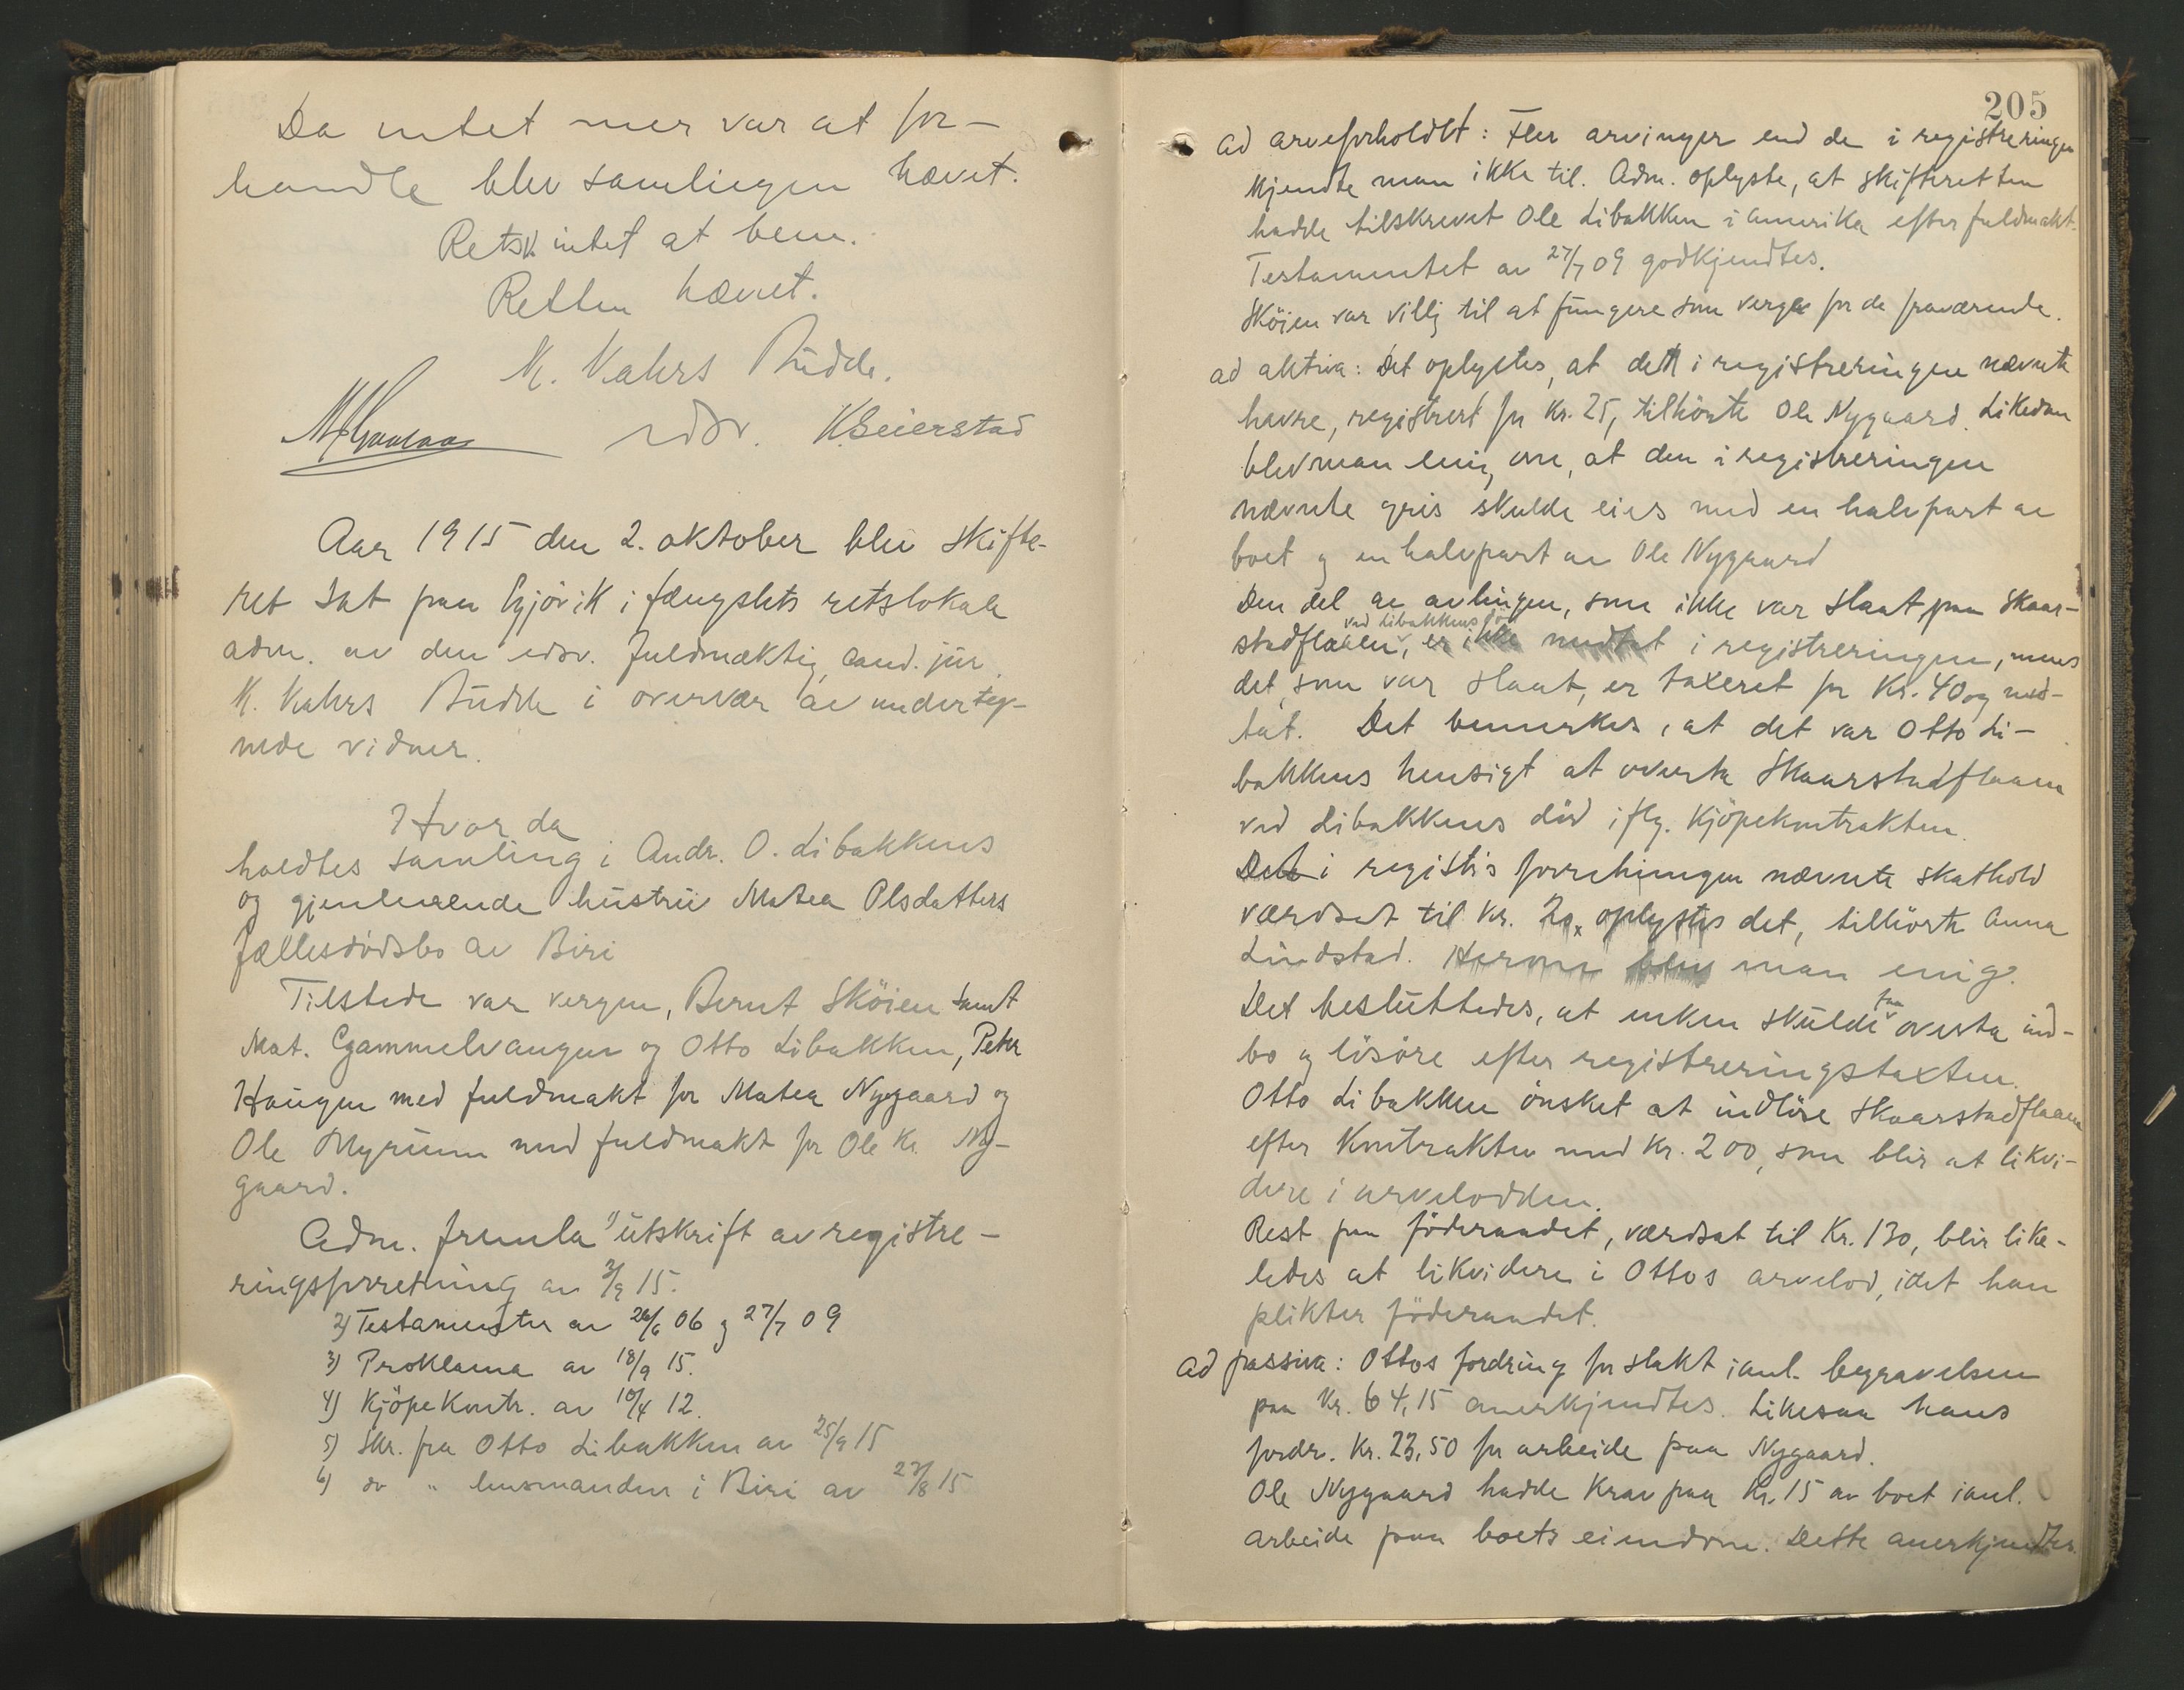 Da intet mer var at for-
handle blev samlingen hævet.
Retsk intet at bem.
Retten hævet.
K. Kahrs Budde.
edsv. K. Seierstad
Aar 1915 den 2. oktober blev skifte-
ret sat paa Gjövik i fængslets retslokale
adm. av den edsv. fuldmæktig, cand. jur.
K. Kahrs Budde i overvær av underteg-
nede vidner.
Hvor da
holdtes samling i Andr. O. Libakkens
og gjenlevende hustru Matea Olsdatters
fællesdödsbo av Biri
Tilstede var vergen, Bernt Sköien samt
Mat. Gammelvangen og Otto Libakken, Peter
Haugen med fuldmakt for Matea Nygaard og
Ole Myrum med fuldmakt for Ole Kr. Ny-
gaard.
Adm. fremla 1) utskrift av registre-
ringsforretning av 3/9 15.
2) Testamenter av 26/6 06 og 27/7 09
3) Proklama av 18/9 15.
4) Kjöpekontr. av 10/4 12.
5) Skr. fra Otto Libakken av 25/9 15
6) do " lensmanden i Biri av 27/8 15
205
ad arveforholdet: Fler arvinger end de i registreringen
kjendte man ikke til. Adm. oplyste, at skifteretten
hadde tilskrevet Ole Libakken i Amerika efter fuldmakt.
Testamentet av 27/7 09 godkjendtes.
Sköien var villig til at fungere som verge for de fraværende.
ad aktiva: Det oplystes, at den i registreringen nævnte
havre, registrert for Kr. 25, tilhörte Ole Nygaard. Likedan
blev man enig om, at den i registreringen
nævnte gris skulde eies med en halvpart av
boet og en halvpart av Ole Nygaard
Den del av avlingen, som ikke var slaat paa Skaar-
ved Libakkens död
stadflaaen, er ikke medtat i registreringen, mens
det, som var slaat, er taxeret for Kr. 40 og med-
tat. Det bemerkes, at det var Otto Li-
bakkens hensigt at overta Skaarstadflaaen
ved Libakkens död iflg. Kjöpekontrakten.
Det i registr.s forretningen nævnte skathold
værdsat til Kr. 20, oplystes det, tilhörte Anna
Lundstad. Herom blev man enig.
Det besluttedes, at enken skulde faa overta ind-
bo og lösöre efter registreringstaxten.
Otto Libakken önsket at indlöse Skaarstadflaaen
efter Kontrakten med Kr. 200, som blir at likvi-
dere i arvelodden.
Rest paa föderaadet, værdsat til Kr. 130, blir like-
ledes at likvidere i Ottos arvelod, idet han
plikter föderaadet.
ad passiva: Ottos fordring for slakt i anl. begravelsen
paa Kr. 64,15 anerkjendtes. Likesaa hans
fordr. Kr. 23,50 for arbeide paa Nygaard.
Ole Nygaard hadde Krav paa Kr. 15 av boet i anl.
arbeide paa boets eiendom. Dette anerkjendtes.